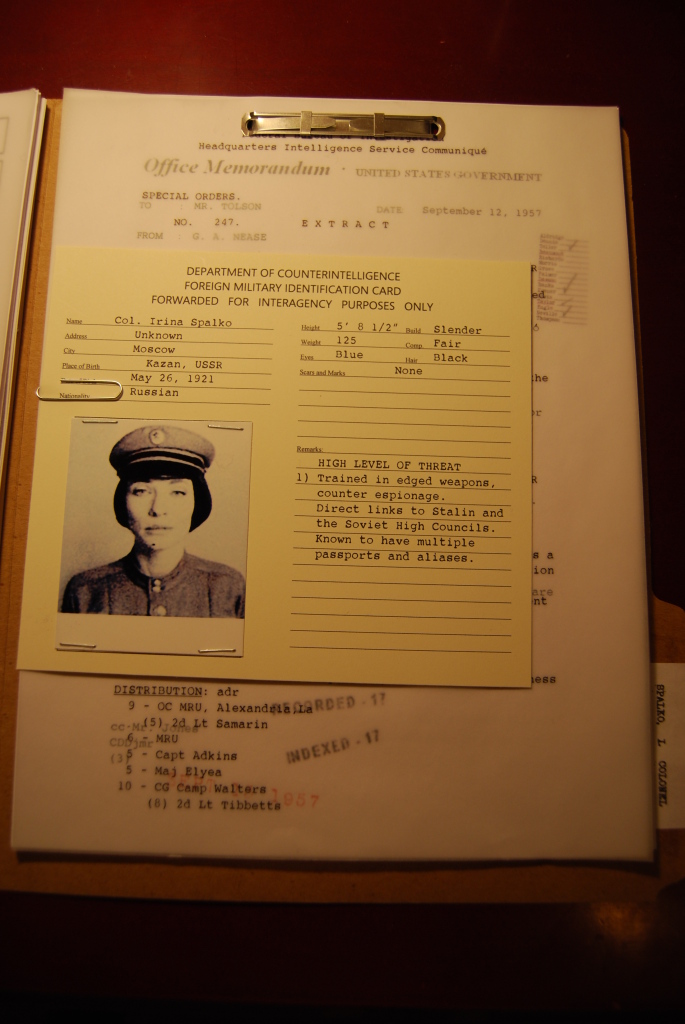 Headquarters Intelligence Service Communiqué
Office Memorandum · UNITED STATES GOVERNMENT
SPECIAL ORDERS.
TO : MR. TOLSON
DATE September 12, 1957
NO. 247. EXTRACT
FROM : G. A. NEASE
DEPARTMENT OF COUNTERINTELLIGENCE
FOREIGN MILITARY IDENTIFICATION CARD
FORWARDED FOR INTERAGENCY PURPOSES ONLY
Name Col. Irina Spalko
Address Unknown
City Moscow
Place of Birth Kazan, USSR
May 26, 1921
Nationality Russian
Height 5' 8 1/2" Build Slender
Weight 125 Comp. Fair
Eyes Blue Hair Black
Scars and Marks None
Remarks:
HIGH LEVEL OF THREAT
1) Trained in edged weapons,
counter espionage.
Direct links to Stalin and
the Soviet High Councils.
Known to have multiple
passports and aliases.
DISTRIBUTION: adr
9 - OC MRU, Alexandria,La
RECORDED - 17
(5) 2d Lt Samarin
cc-Mr. Jones
6 - MRU
CDD:jmr
INDEXED - 17
(3)
5 - Capt Adkins
5 - Maj Elyea
10 - CG Camp Walters
(8) 2d Lt Tibbetts
1957
SPALKO, I. COLONEL